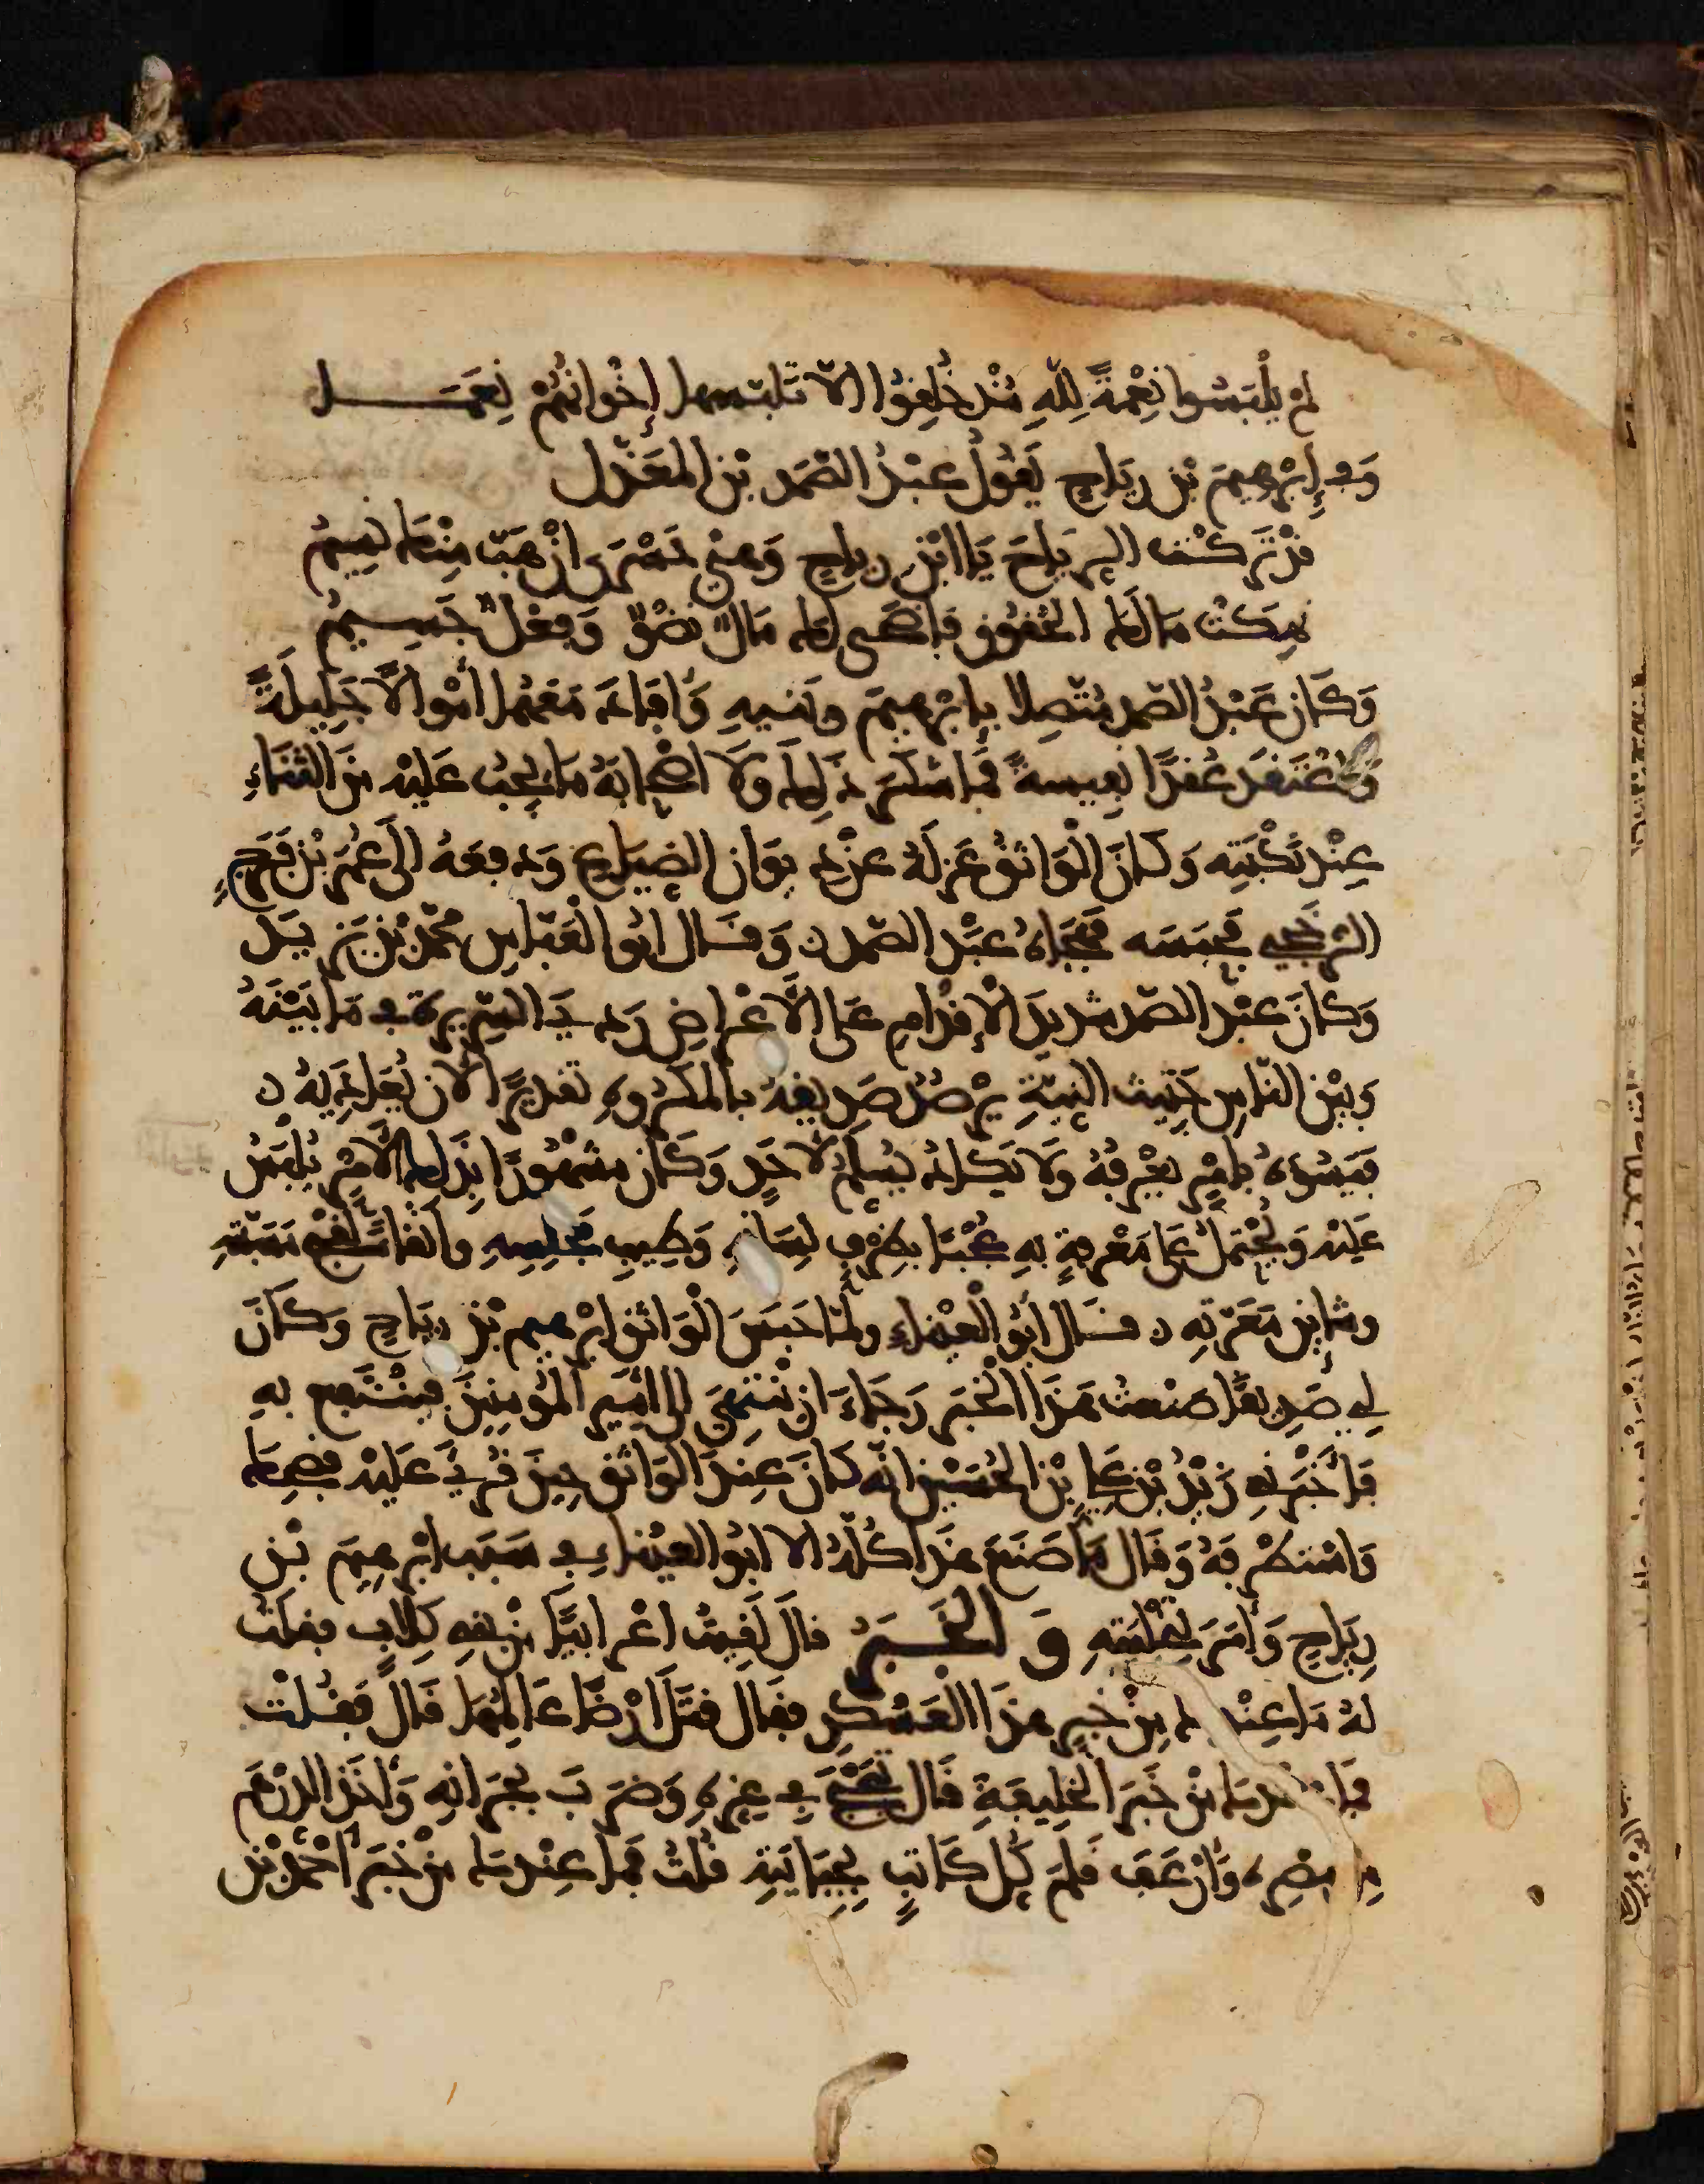 لم يلبسوا نعمةً للهِ مُذ خُلِقُوا الا تلبّسها إخْوانُهُمْ نِعَمَا
وَفي إبْرهِيمَ بْن رِيَاحٍ يَقُولُ عبْدُ الصّمَد بْن المعَذّل
قدْ تَركْتَ الرِّيَاحَ يَا ابْن رياحٍ وَهْيَ حَسْرَى ان هَبّ مِنْها نَسِيمُ
نهكتْ مالكَ الحُقُوقُ فأضحى لك مالٌ نِضْوٌ وَفِعْلٌ جَسِيمُ
وَكانَ عَبْدُ الصّمد مُتّصِلا بإبْرهِيمَ وبنيهِ وَأفادَ مَعَهُم أمْوالًا جَلِيلَةً
وَاعْتَقَدَ عُقَدًا نفِيسةً فما شكَرَ ذلِكَ وَلَا اصْحابَهُ مَا يجبُ عَلَيْه مِنَ الثّنَاءِ
عِنْد نَكْبَتِه وَكانَ الْوَاثِقُ عَزَلَهُ عنْ دِيوَان الضّيَاع وَدفعَهُ الَى عُمَرَ بْن فَرَجٍ
الرّخَّجِي فحبَسَه فهَجَاهُ عَبْد الصّمد ن وَقَال ابُو الْعَبّاسِ مُحمّد بْن يَزِيدَ
وَكانَ عَبْد الصّمد شدِيدَ الْإقْدامِ علَى الْأعْراضِ رَديَ السّرِيرةِ فِي مَا بَيْنَهُ
وَبيْن النّاسِ خَبِيثَ النيّةِ يَرْصُدُ صَدِيقَهُ بالمكْرُوهِ تقديرًا لأن يُعَادِيَهُ ن
فيَسُوءهُ بأمْرٍ يَعْرِفُهُ وَلا يَكادُ يَسْلَمُ لأحَدٍ وَكانَ مشْهُورًا بذَلكَ الأمْرِ يُلْبَسُ
عَلَيْه وَيُحْتَمَلُ عَلَى مَعْرِفةٍ بهِ عُجْبًا بظرْفِ لِسَانِهِ وَطِيبِ مَجْلِسِهِ وأيْضًا لقُبْح مَسَبّتِهِ
وشائِنِ مَعَرّتِهِ ن قال أبُو الْعَيْنَاءِ ولَمّا حَبَسَ الْوَاثِق إبْرهِيم بْن رِيَاحٍ وَكانَ
لِي صَدِيقًا صَنعْتُ هَذَا الْخبَر رَجَاءَ ان يَنْتَهِيَ إلَى أمِير المُؤْمنِينَ فيَنْتَفِع بهِ
فأخْبَرنِي زَيْدُ بْن عَلِيّ بْن الحُسَيْن أنّه كانَ عِنْدَ الوَاثِق حِينَ قُرِئَ عَلَيْه فضَحِكَ
وَاسْتظْرَفهُ وَقَال مَا صَنَعَ هَذَا كُلّهُ إلا ابُو العَيْناءِ فِي سَبَب ابْرهِيمَ بْن
رِيَاحٍ وَأمَر بتَخْلِيَتِهِ وَ الْخَبَرُ قالَ لَقِيتُ اعْرابيًّا مِنْ بَنِي كِلابٍ فقلْتُ
لهُ مَا عِنْدكَ مِنْ خبَر هَذَا العَسْكَرِ فقَال قَتَلَ أرْضًا عَالِمُهَا قَالَ فَقُلْت
فما عِنْدكَ مِنْ خَبَر الخَلِيفةِ قَال بَخْبَحَ فِي عِزّهِ وَضَرَبَ بِجِرانِهِ وَأخَذَ الدّرْهَم
مِن مِصْرهِ وَأرْعَفَ قَلَمَ كلّ كَاتِبٍ بجِبَايَتِهِ قُلْتُ فما عِنْدكَ مِنْ خَبَر أحْمَد بْن